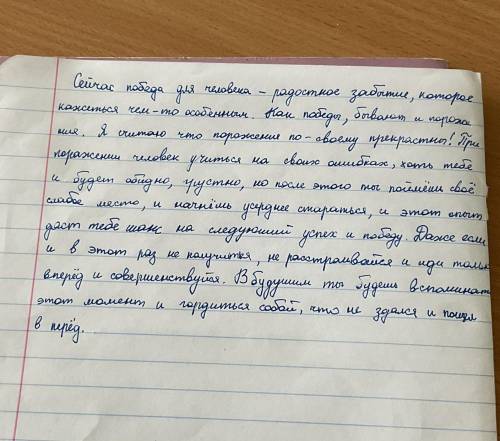 Сейчас победа для человека – радостное забытие, которое
кажеться чем-то особенным. Как победы, бывают и пораже
ния. Я считаю что поражения по-своему прекрастны! При
поражении человек учиться на своих ошибках, хоть тебе
и будет обидно, грустно, но после этого ты поймёшь своё
слабое место, и начнёшь усерднее стараться, и этот опыт
даст тебе шанс на следующий успех и победу. Даже если
и в этот раз не получиться, не расстраивайся и иди только
вперёд и совершенствуйся. В будущим ты будешь вспоминать
этот момент и гордиться собой, что не здался и пошёл
в перёд.